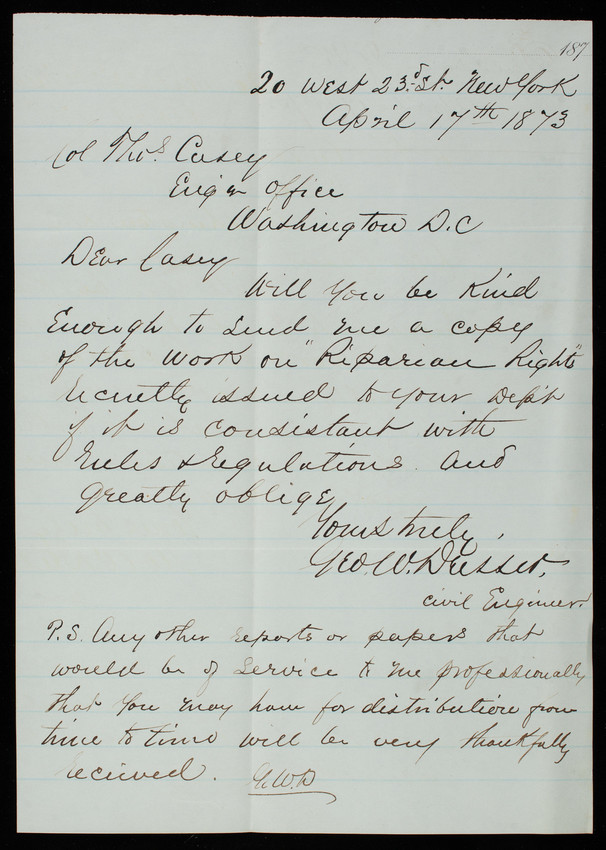 187
20 West 23.d St. New York
April 17th 1873
Col Thos. Casey
Engr Office
Washington D.C
Dear Casey
Will you be Kind
Enough to send me a copy
of the work on "Riparian Rights"
recently issued to your Dept
if it is consistant with
rules & regulations. and
greatly oblige
Yours truly,
Geo. W. Dresser.
civil Engineer.
P.S. Any other reports or papers that
would be of service to me professionally
that you may have for distribution from
time to time will be very thankfully
received. G.W.D